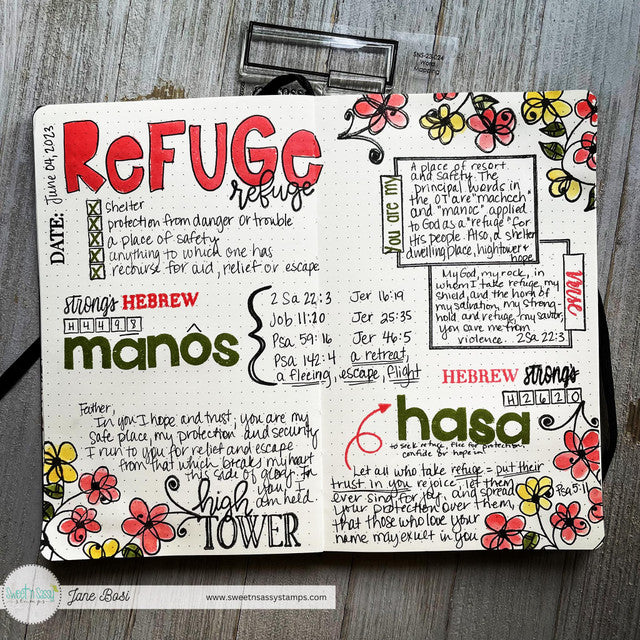 SNS-23C24
DATE: June 04, 2023
ReFUGe
refuge
shelter
protection from danger or trouble
a place of safety
anything to which one has
recourse for aid, relief or escape
strong's HEBREW
H4498
manôs
2 Sa 22:3
Job 11:20
Psa 59:16
Psa 142:4
Jer 16:19
Jer 25:35
Jer 46:5
a retreat,
a fleeing, escape, flight
Father,
In you I hope and trust, you are my
safe place, my protection and security
I run to you for relief and escape
from that which breaks my heart
this side of glory. In
you, I
am held.
high
TOWER
You are my
A place of resort
and safety. The
principal words in
the OT are "machceh"
and "manoc" applied
to God as a "refuge" for
His people. Also, a shelter
dwelling place, hightower &
hope
verse
My God, my rock, in
whom I take refuge, my
shield, and the horn of
my salvation, my strong-
hold and refuge, my savior,
you save me from
violence. 2Sa 22:3
HEBREW strong's
H2620
hasa
to seek refuge, flee for protection,
confide or hope in
Let all who take refuge = put their
trust in you rejoice, let them
ever sing for joy, and spread
your protection over them,
that those who love your
name may exult in you
Psa 5:11
Sweet'n Sassy
stamps
Jane Bosi
www.sweetnsassystamps.com